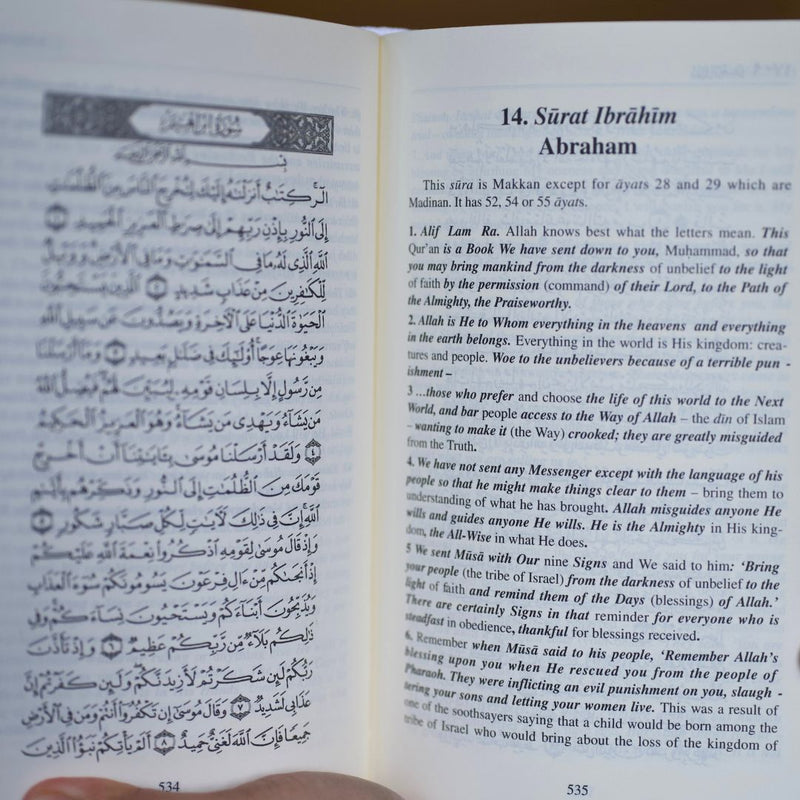 سُورَةُ إِبْرَاهِيمَ
بِسْمِ اللَّهِ الرَّحْمَٰنِ الرَّحِيمِ
الٓر ۚ كِتَٰبٌ أَنزَلْنَٰهُ إِلَيْكَ لِتُخْرِجَ ٱلنَّاسَ مِنَ ٱلظُّلُمَٰتِ
إِلَى ٱلنُّورِ بِإِذْنِ رَبِّهِمْ إِلَىٰ صِرَٰطِ ٱلْعَزِيزِ ٱلْحَمِيدِ ١
ٱللَّهِ ٱلَّذِى لَهُۥ مَا فِى ٱلسَّمَٰوَٰتِ وَمَا فِى ٱلْأَرْضِ ۗ وَوَيْلٌ
لِّلْكَٰفِرِينَ مِنْ عَذَابٍ شَدِيدٍ ٢ ٱلَّذِينَ يَسْتَحِبُّونَ
ٱلْحَيَوٰةَ ٱلدُّنْيَا عَلَى ٱلْءَاخِرَةِ وَيَصُدُّونَ عَن سَبِيلِ ٱللَّهِ
وَيَبْغُونَهَا عِوَجًا ۚ أُو۟لَٰٓئِكَ فِى ضَلَٰلٍۭ بَعِيدٍ ٣ وَمَآ أَرْسَلْنَا
مِن رَّسُولٍ إِلَّا بِلِسَانِ قَوْمِهِۦ لِيُبَيِّنَ لَهُمْ ۖ فَيُضِلُّ ٱللَّهُ
مَن يَشَآءُ وَيَهْدِى مَن يَشَآءُ ۚ وَهُوَ ٱلْعَزِيزُ ٱلْحَكِيمُ
٤ وَلَقَدْ أَرْسَلْنَا مُوسَىٰ بِـَٔايَٰتِنَآ أَنْ أَخْرِجْ
قَوْمَكَ مِنَ ٱلظُّلُمَٰتِ إِلَى ٱلنُّورِ وَذَكِّرْهُم بِأَيَّىٰمِ
ٱللَّهِ ۚ إِنَّ فِى ذَٰلِكَ لَءَايَٰتٍ لِّكُلِّ صَبَّارٍ شَكُورٍ ٥
وَإِذْ قَالَ مُوسَىٰ لِقَوْمِهِ ٱذْكُرُوا۟ نِعْمَةَ ٱللَّهِ عَلَيْكُمْ
إِذْ أَنجَىٰكُم مِّنْ ءَالِ فِرْعَوْنَ يَسُومُونَكُمْ سُوٓءَ ٱلْعَذَابِ
وَيُذَبِّحُونَ أَبْنَآءَكُمْ وَيَسْتَحْيُونَ نِسَآءَكُمْ ۚ وَفِى
ذَٰلِكُم بَلَآءٌ مِّن رَّبِّكُمْ عَظِيمٌ ٦ وَإِذْ تَأَذَّنَ
رَبُّكُمْ لَئِن شَكَرْتُمْ لَأَزِيدَنَّكُمْ ۖ وَلَئِن كَفَرْتُمْ إِنَّ
عَذَابِى لَشَدِيدٌ ٧ وَقَالَ مُوسَىٰٓ إِن تَكْفُرُوٓا۟ أَنتُمْ وَمَن فِى ٱلْأَرْضِ
جَمِيعًا فَإِنَّ ٱللَّهَ لَغَنِىٌّ حَمِيدٌ ٨ أَلَمْ يَأْتِكُمْ نَبَؤُا۟ ٱلَّذِينَ
534
14. Sūrat Ibrāhīm
Abraham
This sūra is Makkan except for āyats 28 and 29 which are
Madinan. It has 52, 54 or 55 āyats.
1. Alif Lam Ra. Allah knows best what the letters mean. This
Qur'an is a Book We have sent down to you, Muḥammad, so that
you may bring mankind from the darkness of unbelief to the light
of faith by the permission (command) of their Lord, to the Path of
the Almighty, the Praiseworthy.
2. Allah is He to Whom everything in the heavens and everything
in the earth belongs. Everything in the world is His kingdom: crea-
tures and people. Woe to the unbelievers because of a terrible pun -
ishment –
3 ...those who prefer and choose the life of this world to the Next
World, and bar people access to the Way of Allah – the dīn of Islam
– wanting to make it (the Way) crooked; they are greatly misguided
from the Truth.
4. We have not sent any Messenger except with the language of his
people so that he might make things clear to them – bring them to
understanding of what he has brought. Allah misguides anyone He
wills and guides anyone He wills. He is the Almighty in His king-
dom, the All-Wise in what He does.
5 We sent Mūsā with Our nine Signs and We said to him: 'Bring
your people (the tribe of Israel) from the darkness of unbelief to the
light of faith and remind them of the Days (blessings) of Allah.'
There are certainly Signs in that reminder for everyone who is
steadfast in obedience, thankful for blessings received.
6. Remember when Mūsā said to his people, 'Remember Allah's
blessing upon you when He rescued you from the people of
Pharaoh. They were inflicting an evil punishment on you, slaugh -
tering your sons and letting your women live. This was a result of
one of the soothsayers saying that a child would be born among the
tribe of Israel who would bring about the loss of the kingdom of
535